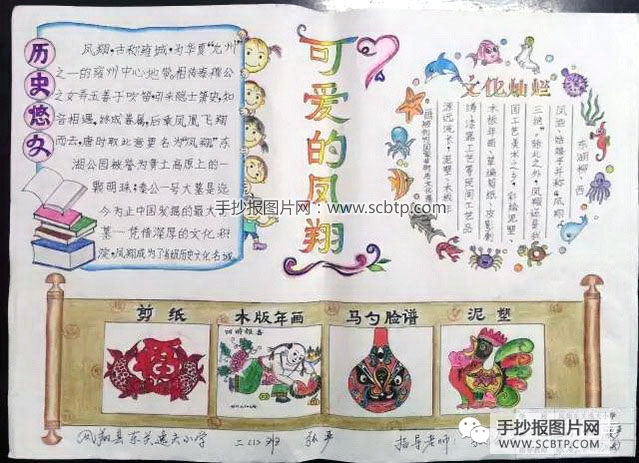 历史悠久
凤翔,古称雍城,为华夏“九州”
之一的雍州中心地带。相传秦穆公
之女弄玉善于吹笛,引来隐士萧史,知
音相遇,终成眷属,后乘凤凰飞翔
而去,唐时取此意更名为“凤翔”。东
湖公园被誉为黄土高原上的一
颗明珠;秦公一号大墓是迄
今为止中国发掘的最大古
墓…凭借深厚的文化积
淀,凤翔成为了省级历史文化名城
可爱的凤翔
文化灿烂
东湖柳、西
凤酒、姑娘手并称“凤翔
三绝”。除此之外,凤翔还是我
国工艺美术之乡。彩绘泥塑、
木版年画、草编、剪纸、皮影、刺
绣、漆器工艺等民间工艺品
源远流长。泥塑、木版年
手抄报图片网:www.scbtp.com
剪纸
木版年画
马勺脸谱
泥塑
凤翔县东关逸夫小学
二(1)班
指导老师:
手抄报图片网
WWW.SCBTP.COM